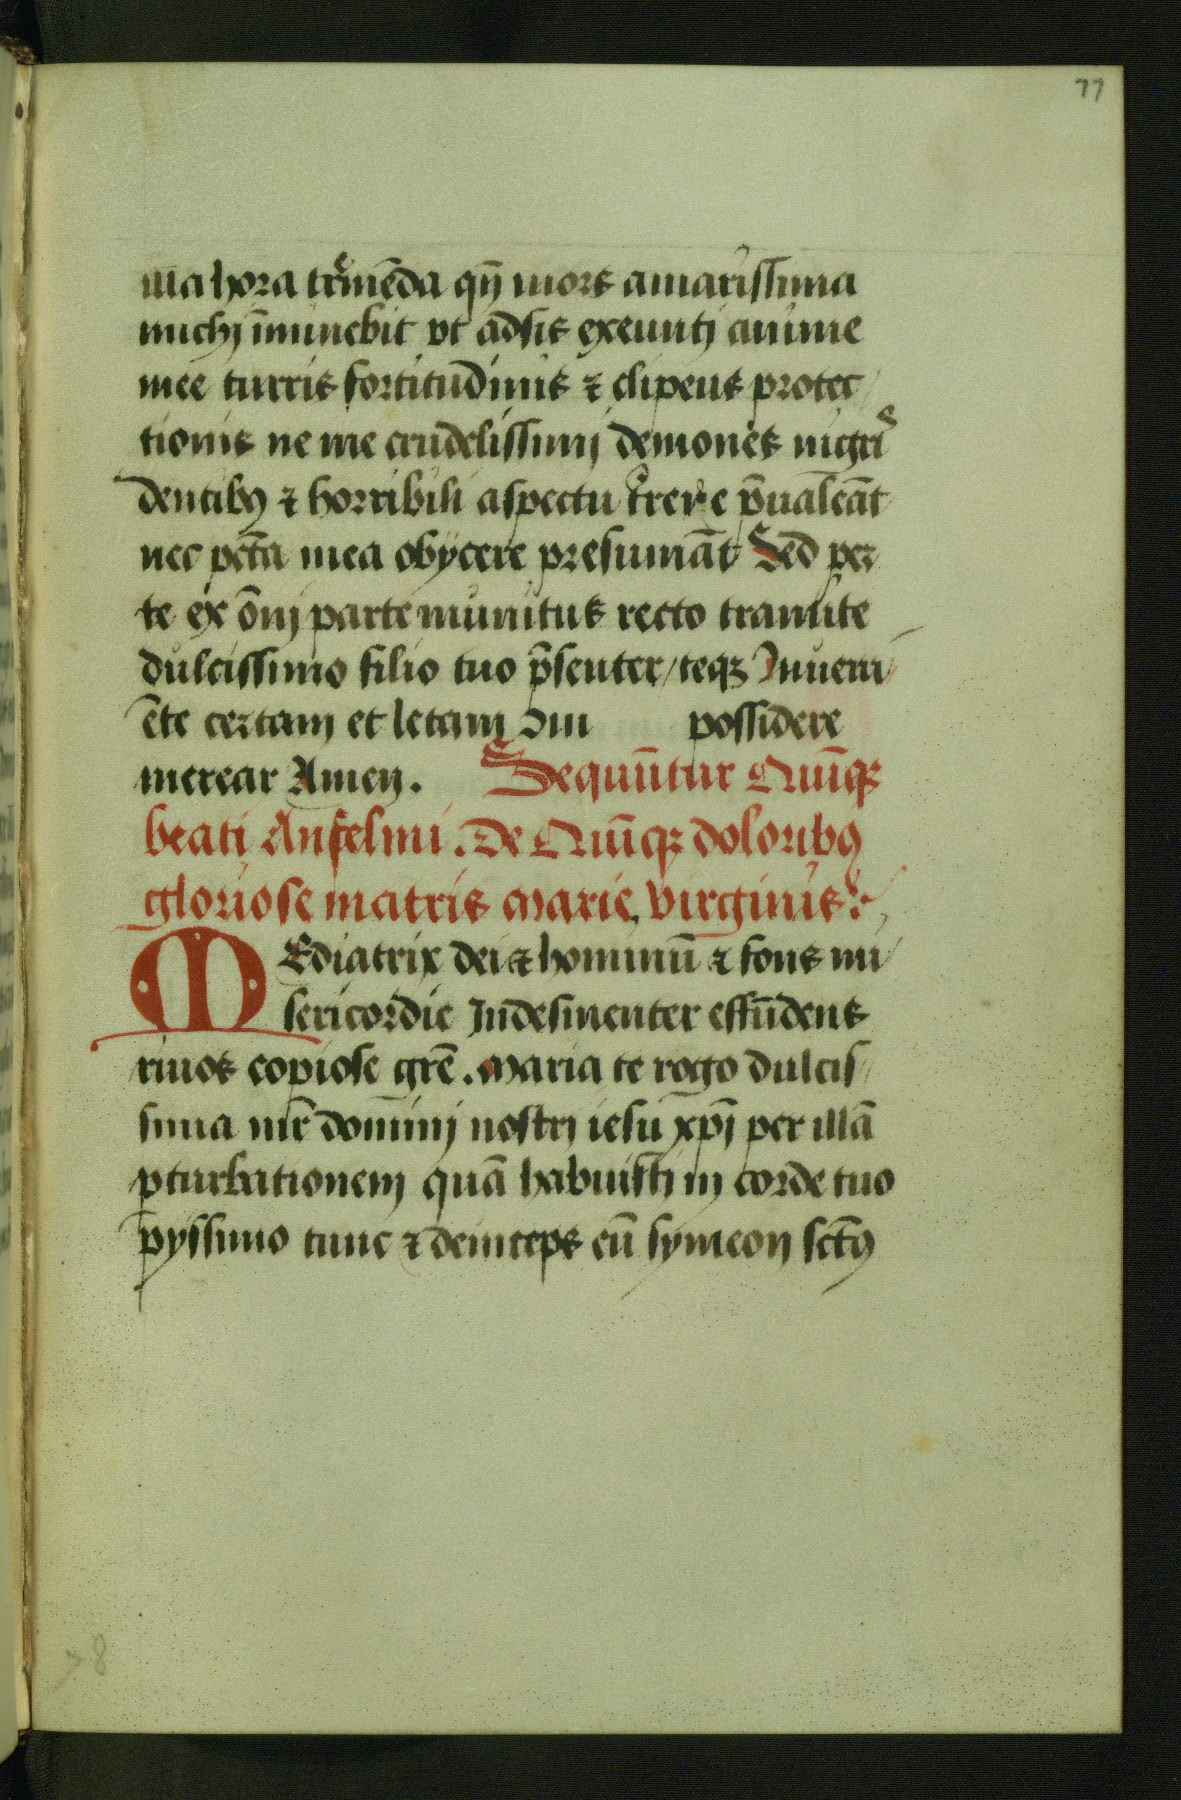 77
illa hora trēmēda qn̄ mors amarissima
michj īminebit vt adsis exeuntj anime
mee turris fortitudinis ⁊ clipeus protec/
tionis ne me crudelissimj demones nigris
dentibꝰ ⁊ horribili aspectu p̄ualeāt
nec pctā mea obÿcere presumāt Sed per
te ex om̄j parte munitus recto tramite
dulcissimo filio tuo p̄senter/teqꝫ Inueni/
ēte certam et letam possidere
merear Amen. Sequūtur Quīqꝫ
beatj Anselmi. De Quīqꝫ doloribꝰ
gloriose matris marie virginis:
MEdiatrix dei ⁊ hominū ⁊ fons mi/
sericordie Indesinenter effūdens
riuos copiose grē. Maria te rogo dulcis/
sima mr̄ dominj nostrj iesu xp̄j per illā
ꝑturbationem quā habuistj in corde tuo
pyssimo tunc ⁊ deinceps cū symeon sctꝰ
78